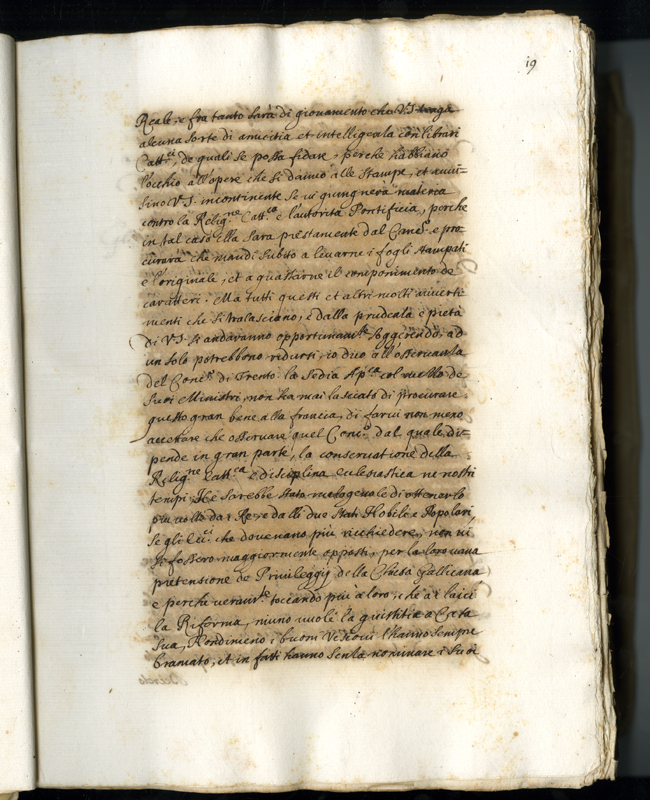 19
Reale, e fra tanto sarà di giovamento che V.S. tenga
alcuna sorte di amicitia et intelligenza con librari
Catt.ci, de quali se possa fidare, perche habbiano
l'occhio all'opere che si danno alle stampe, et avvi-
sino V.S. incontinente se vi giungnerà materia
contro la Relig.ne Catt.ca e l'autorità Pontificia, perche
in tal caso ella sarà prestamente dal Canc.re e pro-
curarà che mandi subito a levarne i fogli stampati
e l'originale, et a guastarne il componimento de
caratteri. Ma tutti questi et altri molti averti-
menti che si tralasciono, e dalla prudenza e pietà
di V.S. si andaranno opportunam.te soggerendo, ad
un solo potrebbono ridursi, io dico all'osservanza
del Conc.o di Trento. la Sedia Ap.ca col mezzo de
Suoi Ministri non ha mai lasciato di procurare
questo gran bene alla francia, di farvi non meno
accettare che osservare quel Conc.o dal quale di-
pende in gran parte, la conservatione della
Relig.ne Catt.ca e disciplina eclesiastica ne nostri
tempi, Ne sarebbe stato malagevole di ottenerlo
più volte da i Re, e dalli due Stati Nobile e Popolari,
se gli Ecc.ci che dovevano più ricchiedere, non vi
si fossero maggiormente opposti, per la loro vana
pretensione de Privileggij della Chiesa Gallicana
e perche veram.te toccando più a loro, che a i laici
la Riforma, niuno vuole la giustitia a Casa
sua, Nondimeno i buoni Vescovi l'hanno sempre
bramato, et in fatti hanno senza nominare i suoi